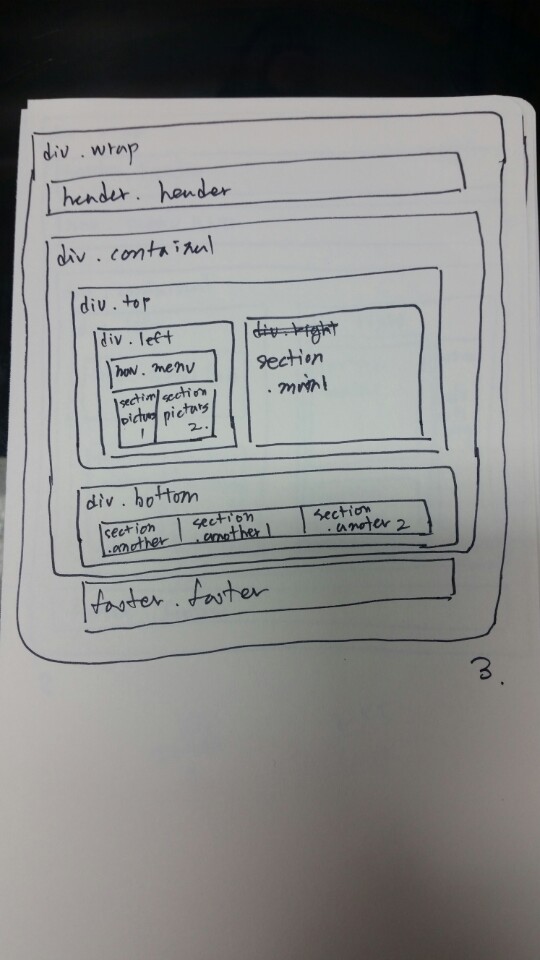 div.wrap
header. header
div.container
div.top
div.left
nav. menu
section
picture
1
section
picture
2.
div.right
section
.main
div.bottom
section
.another
section
.another 1
section
.anoter 2
footer. footer
3.